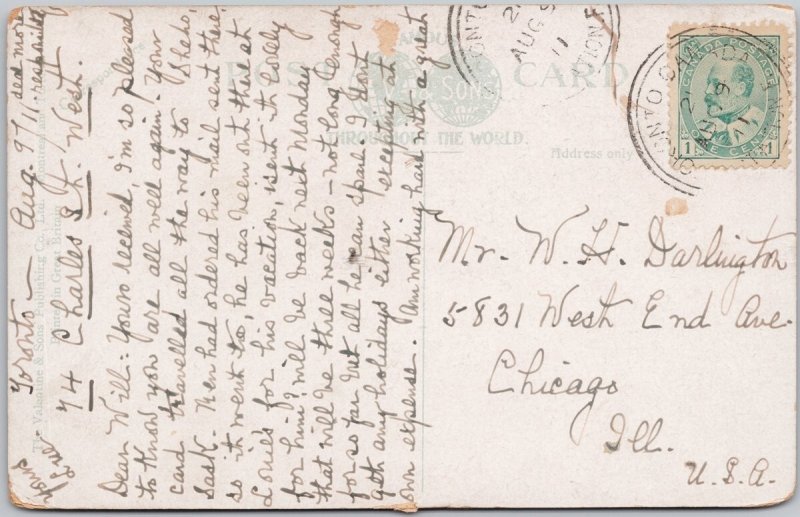 Toronto - Aug 9/11
74 Charles St. West.
Dear Will:- Yours received, I'm so pleased
to know you are all well again. Your
card travelled all the way to Sheho,
Sask. Ken had ordered his mail sent there
so it went to, he has been out there at
Louie's for his vacation, isn't it Dolly
for him? will be back next Monday
that will be three weeks - not long enough
for so far but all he can spare. I don't
get any holidays either except at
own expense. Am working hard with a great
POST CARD
& SONS
THROUGHOUT THE WORLD.
Correspondence
Address only
The Valentine & Sons Publishing Co., Ltd., Montreal and
Printed in Great Britain
CANADA POSTAGE
1 ONE CENT 1
TORONTO CANADA
AUG 9
11
STATION F
Mr. W. H. Darlington
5831 West End Ave.
Chicago
Ill.
U.S.A.